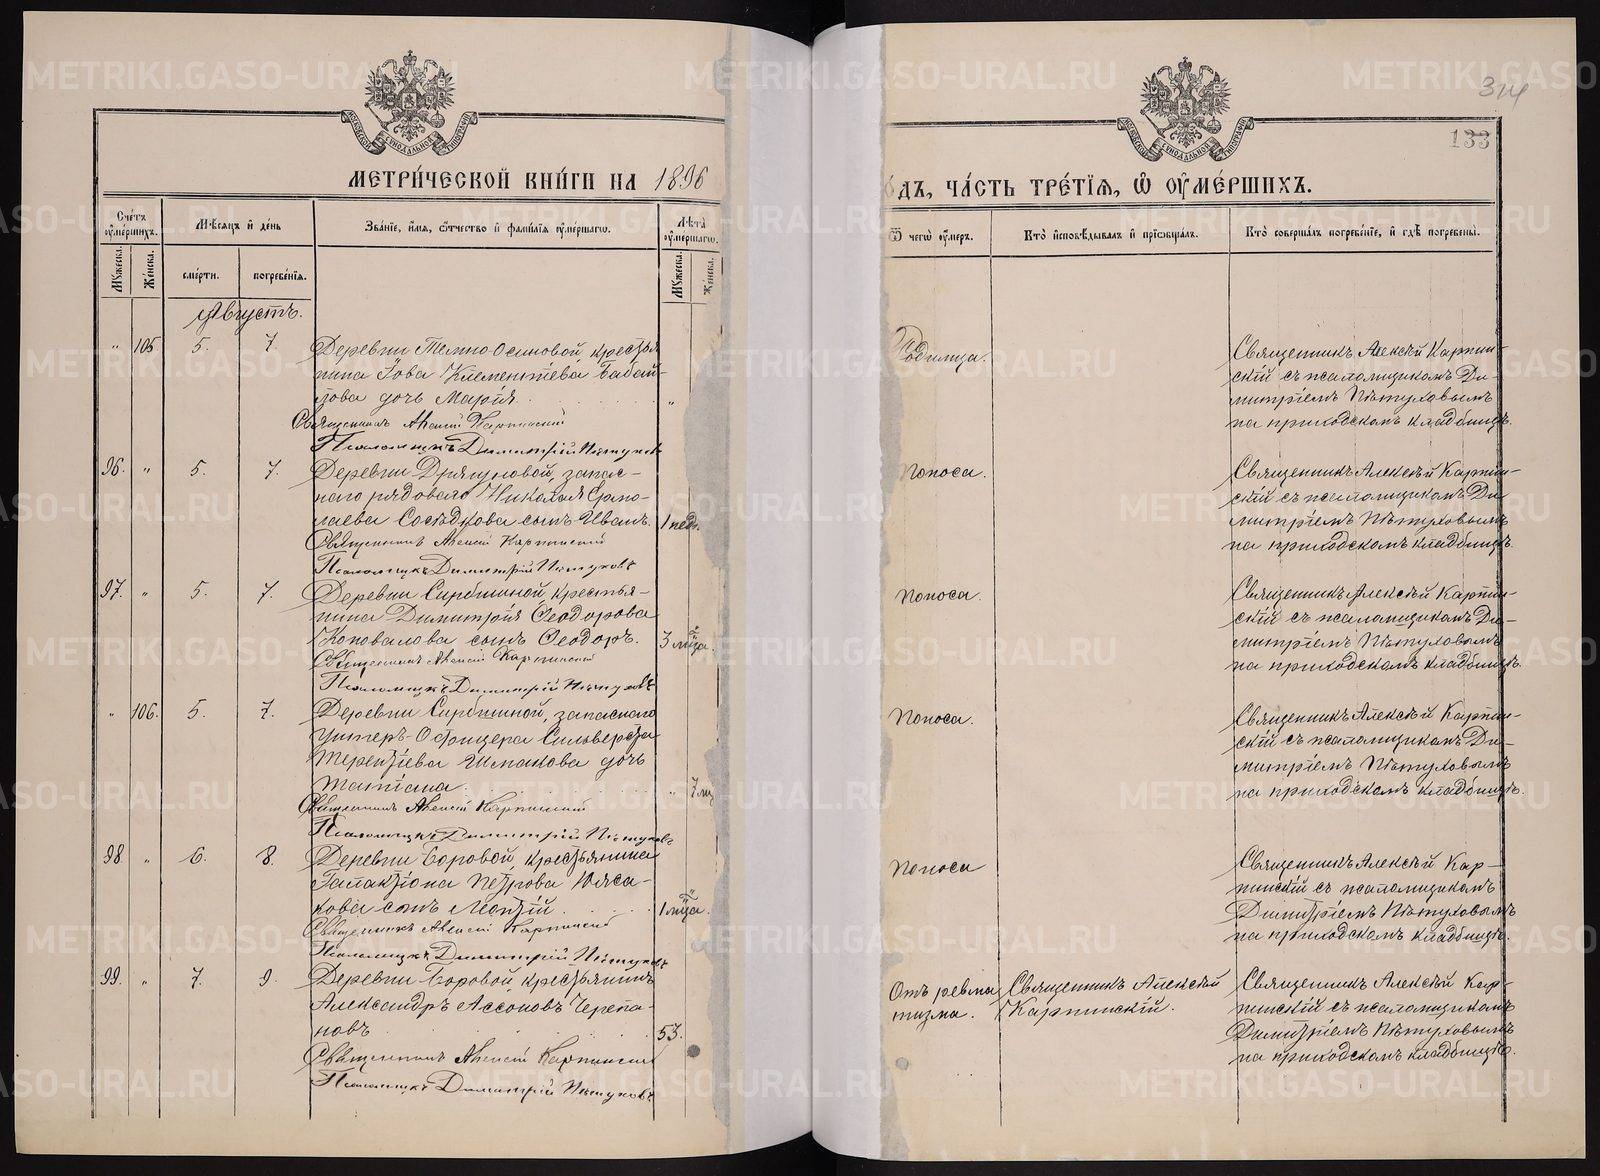 314
133
МЕТРИ́ЧЕСКОЙ КНИ́ГИ НА 1896
О́ДЪ, ЧА́СТЬ ТРЕ́ТІѦ, Ѡ҆ ОУ҆МЕ́РШИХЪ.
Сче́тъ оу҆ме́ршихъ.
Мѣ́сяцъ и҆ де́нь
Зва́ніе, и҆́мя, ѻ҆́тчество и҆ фами́лія оу҆ме́ршагѡ.
Лѣ́та оу҆ме́ршагѡ.
Мꙋ́жеска.
Же́нска.
сме́рти.
погребе́нія.
Мꙋ́жеска.
Же́нска.
Ѿ чегѡ̀ оу҆́меръ.
Кто̀ и҆сповѣ́дывалъ и҆ прїѡбща́лъ.
Кто̀ соверша́лъ погребе́ніе, и҆ гдѣ̀ погребены̀.
Августъ.
" 105 5. 7. Деревни Темно-Осиновой, крестья
нина Іова Клементіева Бабай-
лова дочь Марія
Священникъ Алексій Карпинскій
Псаломщикъ Димитрій Пѣтуховъ
Родимца.
Священникъ Алексѣй Карпин-
скій съ псаломщикомъ Ди-
митріемъ Пѣтуховымъ
на приходскомъ кладбищѣ.
96. " 5. 7. Деревни Дрягуновой, запас-
наго рядоваго Николая Ермо-
лаева Сосѣдкова сынъ Иванъ. 1 нед.
Священникъ Алексій Карпинскій
Псаломщикъ Димитрій Пѣтуховъ
Поноса.
Священникъ Алексѣй Карпин-
скій съ псаломщикомъ Ди-
митріемъ Пѣтуховымъ
на приходскомъ кладбищѣ.
97. " 5. 7. Деревни Сербишной крестья-
нина Димитрія Ѳеодорова
Коновалова сынъ Ѳеодоръ. 3 мца.
Священникъ Алексій Карпинскій
Псаломщикъ Димитрій Пѣтуховъ
Поноса.
Священникъ Алексѣй Карпин-
скій съ псаломщикомъ Ди-
митріемъ Пѣтуховымъ
на приходскомъ кладбищѣ.
" 106. 5. 7. Деревни Сербишной, запаснаго
Унтеръ-Офицера Сильверста
Терентіева Шмакова дочь
Татіана. " 7 мц
Священникъ Алексій Карпинскій
Псаломщикъ Димитрій Пѣтуховъ
Поноса.
Священникъ Алексѣй Карпин-
скій съ псаломщикомъ Ди-
митріемъ Пѣтуховымъ
на приходскомъ кладбищѣ.
98. " 6. 8. Деревни Боровой, крестьянина
Галактіона Петрова Юяса-
кова сынъ Леонтій 1 мца.
Священникъ Алексій Карпинскій
Псаломщикъ Димитрій Пѣтуховъ
Поноса
Священникъ Алексѣй Кар-
пинскій съ псаломщикомъ
Димитріемъ Пѣтуховымъ
на приходскомъ кладбищѣ.
99. " 7. 9. Деревни Боровой крестьянинъ
Александръ Ассоновъ Черепа-
новъ 53.
Священникъ Алексій Карпинскій
Псаломщикъ Димитрій Пѣтуховъ.
Отъ ревма
тизма.
Священникъ Алексѣй
Карпинскій.
Священникъ Алексѣй Кар-
пинскій съ псаломщикомъ
Димитріемъ Пѣтуховымъ
на приходскомъ кладбищѣ.